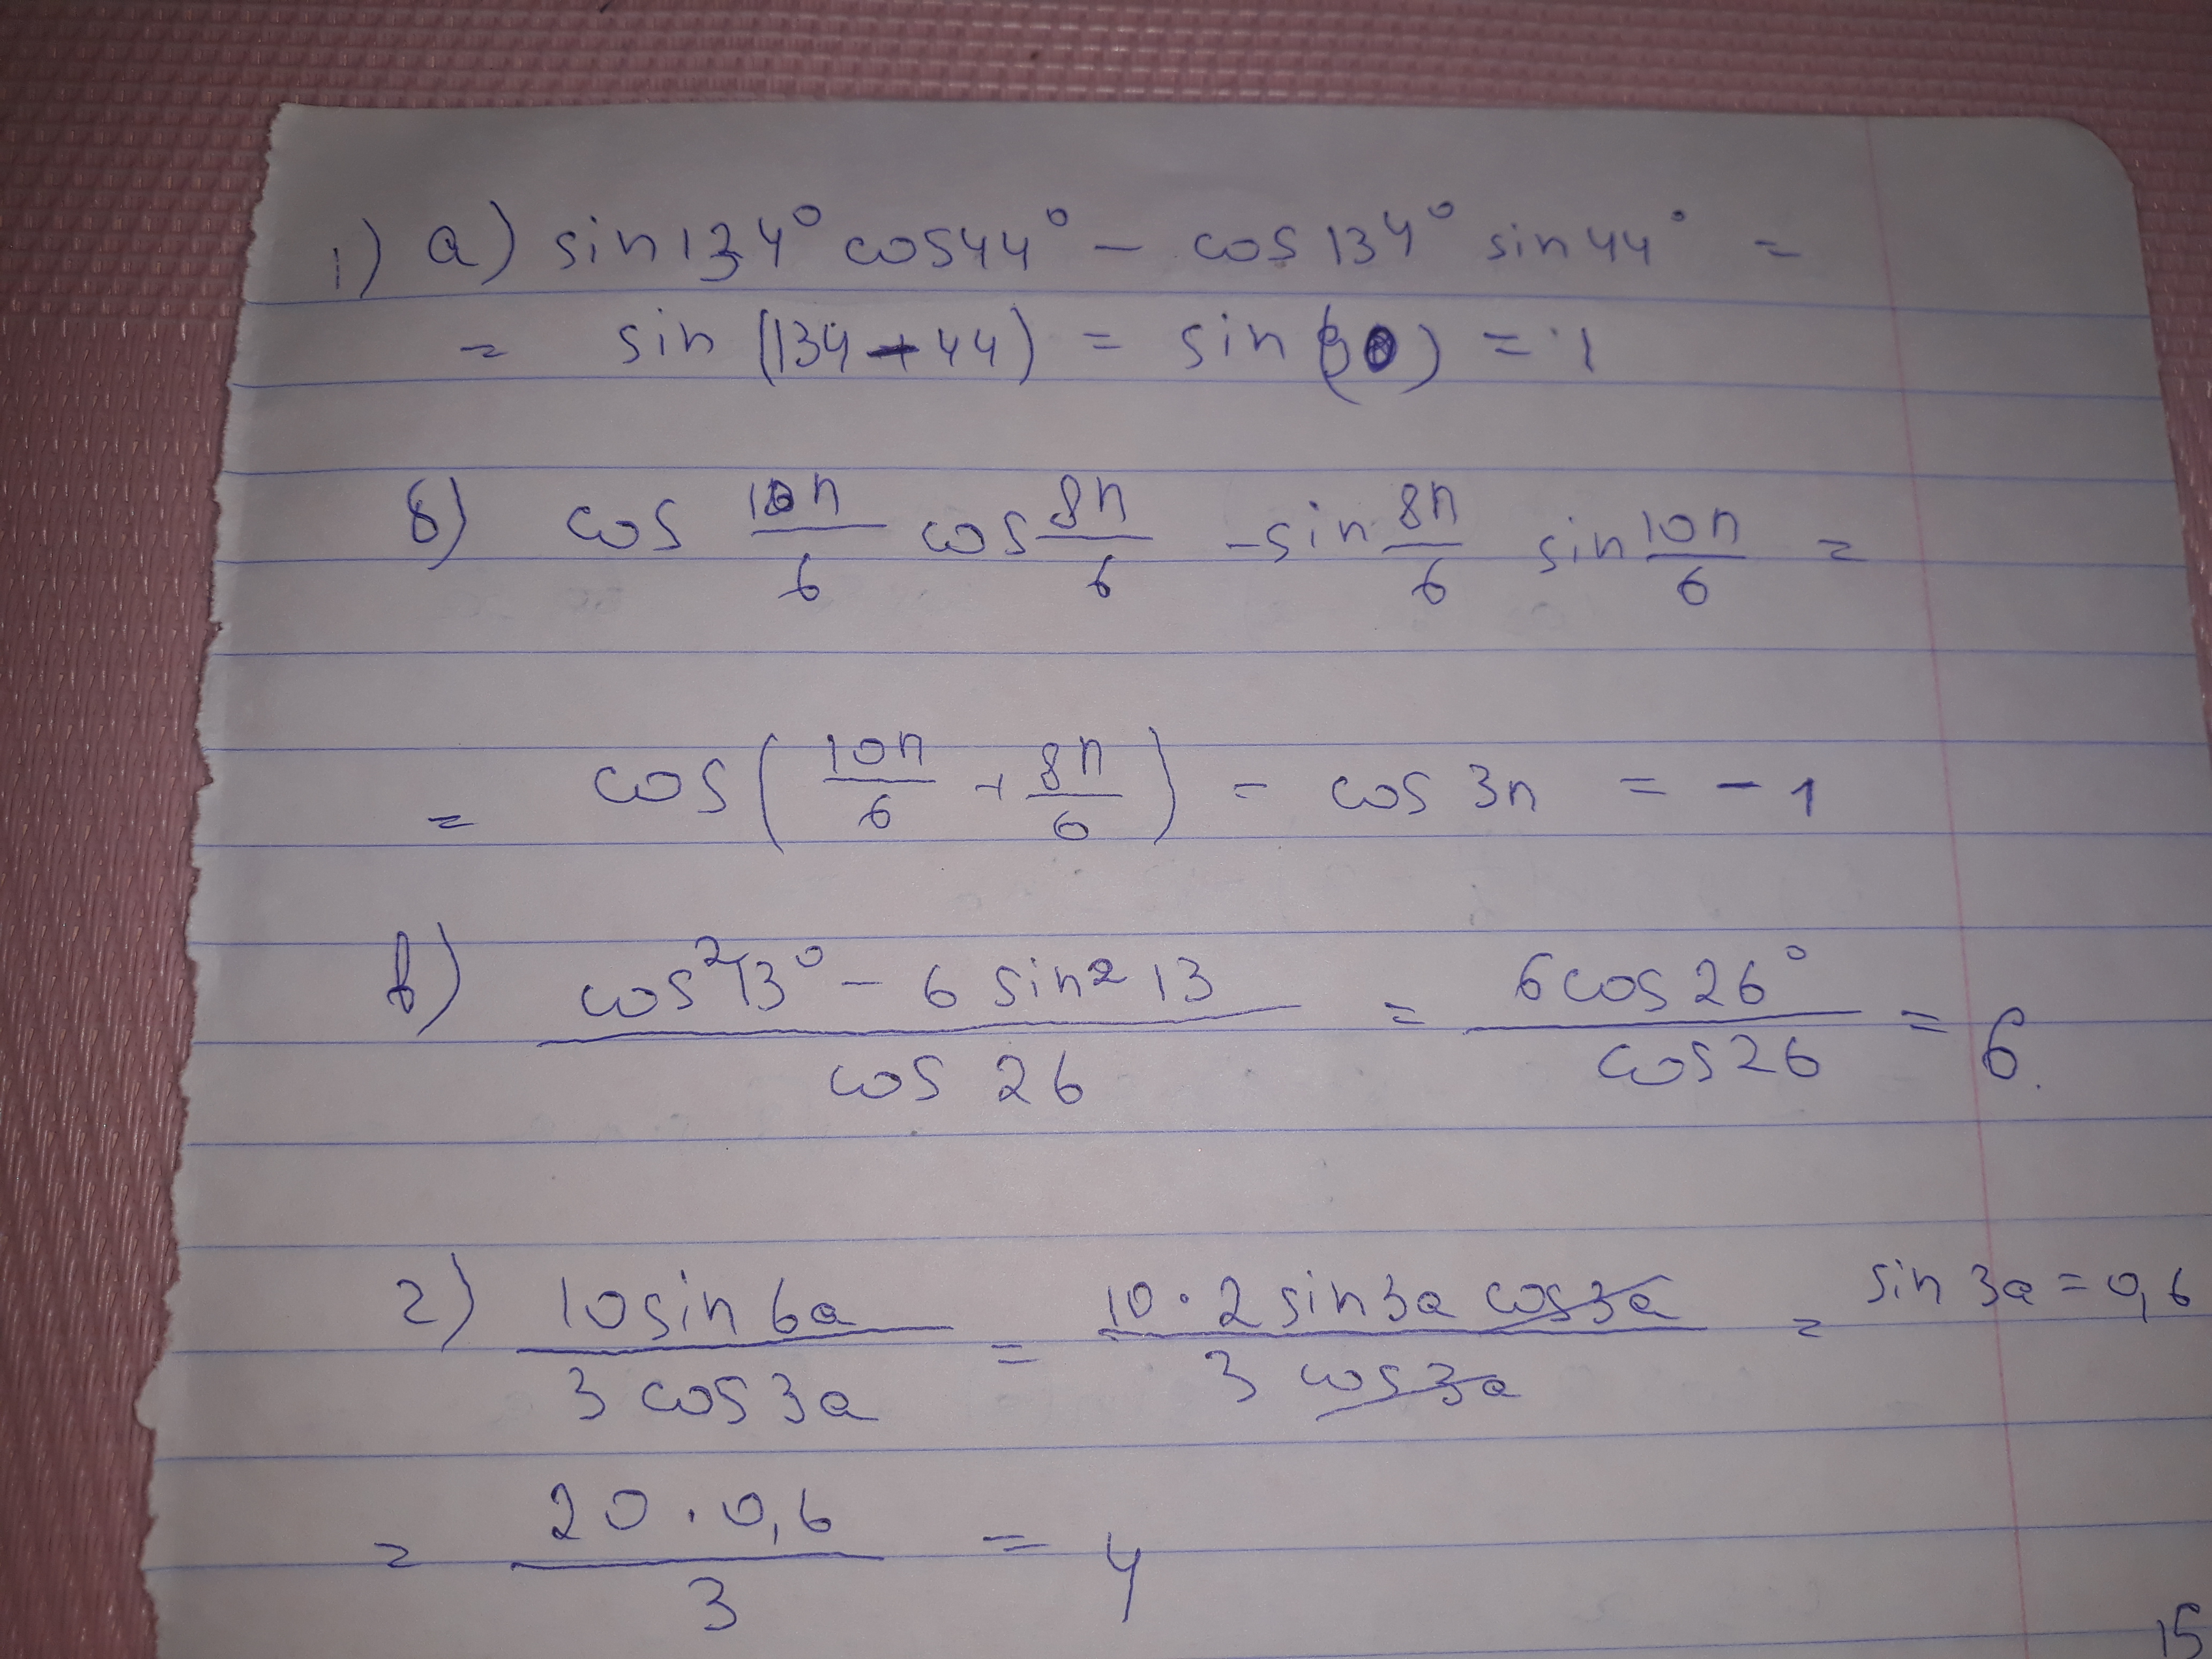 1) а) sin134° cos44° – cos134° sin44° =
= sin (134 – 44) = sin(90) = 1
б) cos 10π/6 cos 8π/6 - sin 8π/6 sin 10π/6 =
= cos(10π/6 + 8π/6) = cos 3π = -1
в) cos²13° – 6 sin²13 / cos 26 = 6cos26° / cos26 = 6.
г) 10sin6a / 3cos3a = 10·2sin3a cos3a / 3cos3a = sin3a = 0,6
= 20·0,6 / 3 = 4
15